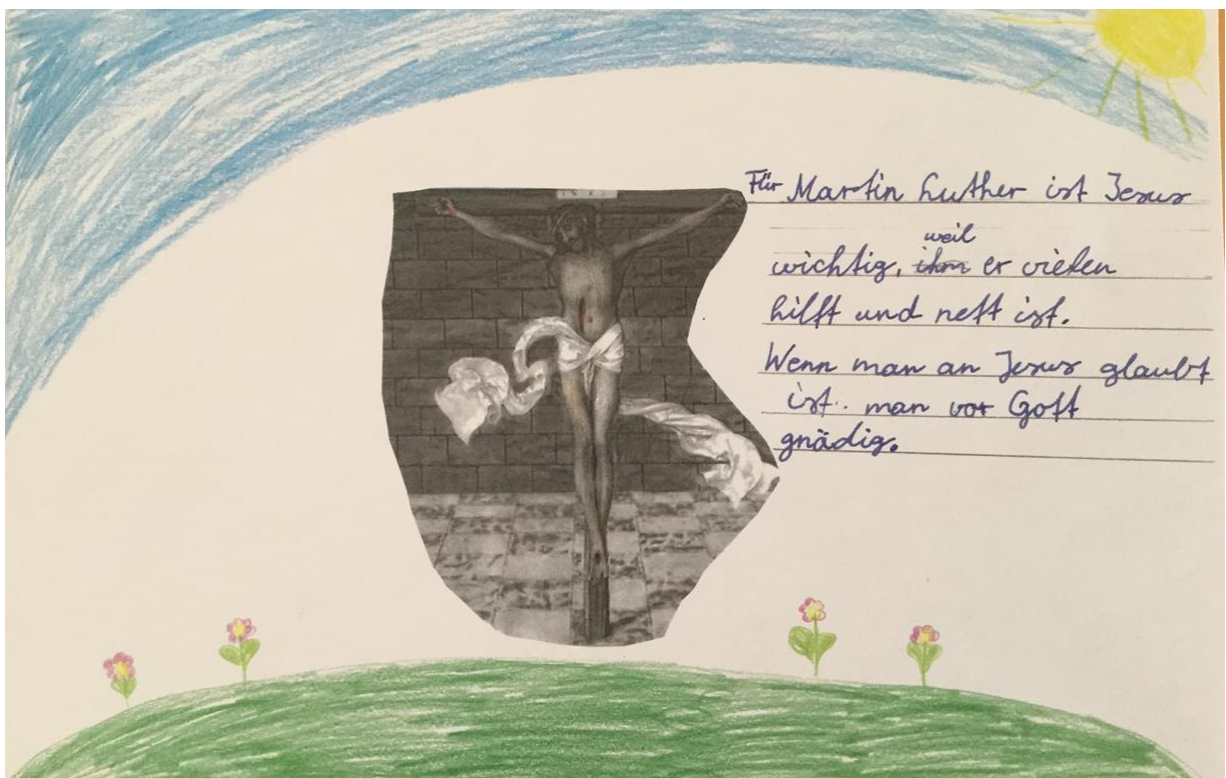 Für Martin Luther ist Jesus
weil
wichtig, ihm er vielen
hilft und nett ist.
Wenn man an Jesus glaubt
ist man vor Gott
gnädig.